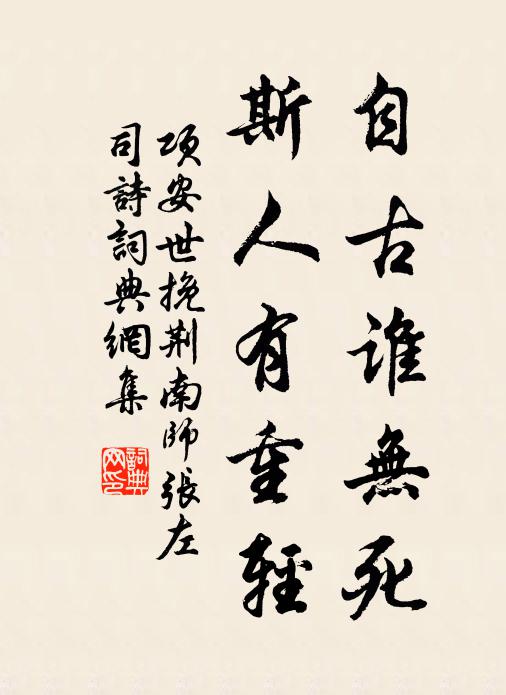 自古誰無死
斯人有重輕
項安世挽荆南師張左
司詩詞典網集
詞典
网印